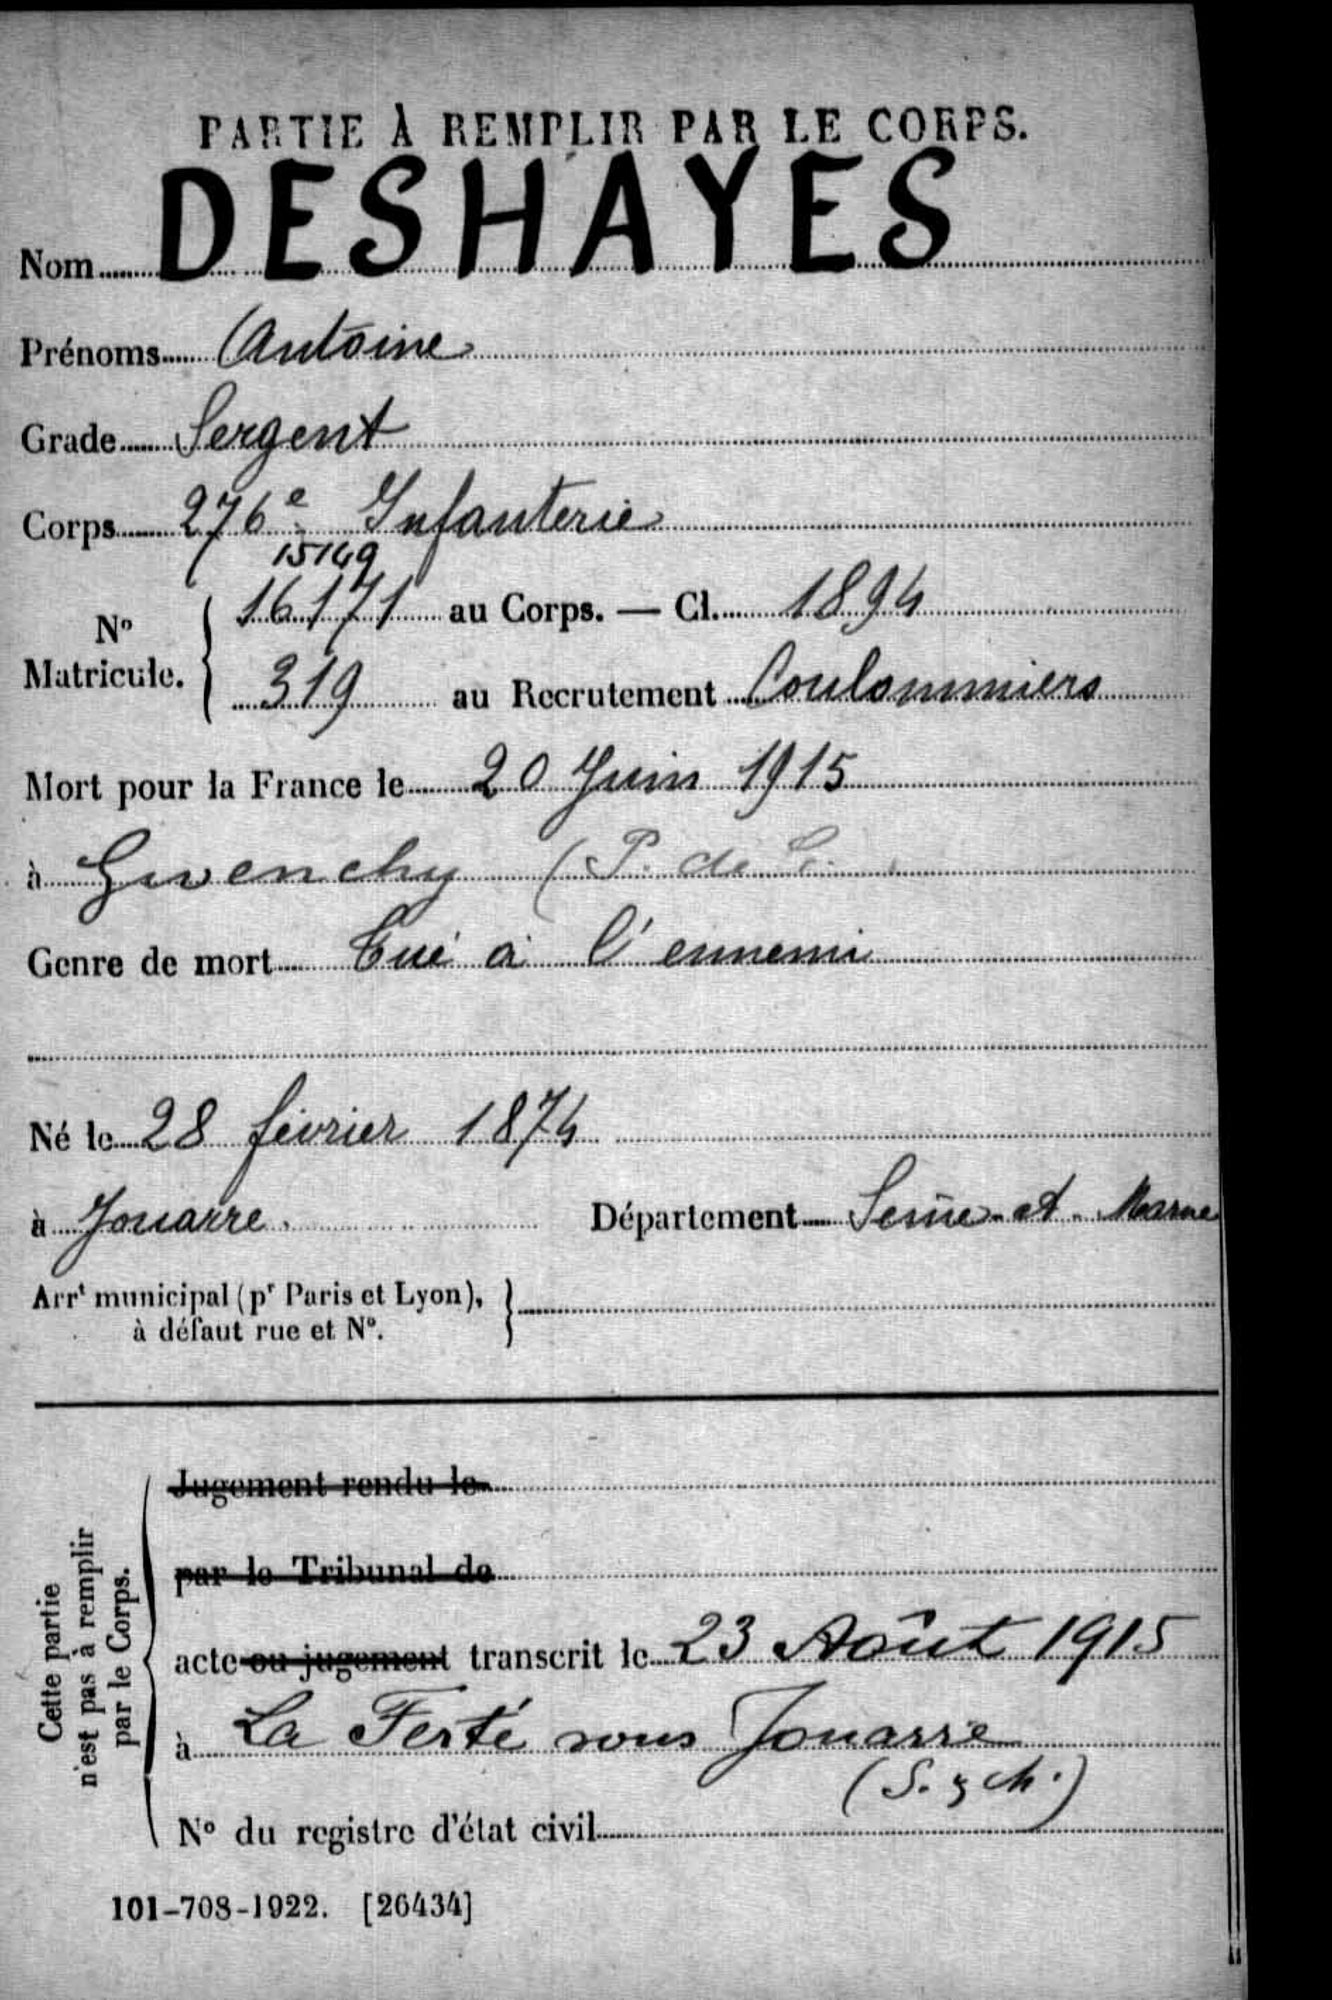 PARTIE À REMPLIR PAR LE CORPS.
Nom DESHAYES
Prénoms Antoine
Grade Sergent
Corps 276e Infanterie
15149
N° Matricule. { 16171 au Corps. — Cl. 1894
319 au Recrutement Coulommiers
Mort pour la France le 20 Juin 1915
à Givenchy (P. de C.
Genre de mort Tué à l'ennemi
Né le 28 février 1874
à Jouarre. Département Seine-et-Marne
Arrt municipal (pr Paris et Lyon),
à défaut rue et N°. }
Cette partie
n'est pas à remplir
par le Corps.
Jugement rendu le
par le Tribunal de
acte ou jugement transcrit le 23 Août 1915
à La Ferté sous Jouarre
(S. & M.)
N° du registre d'état civil
101-708-1922. [26434]